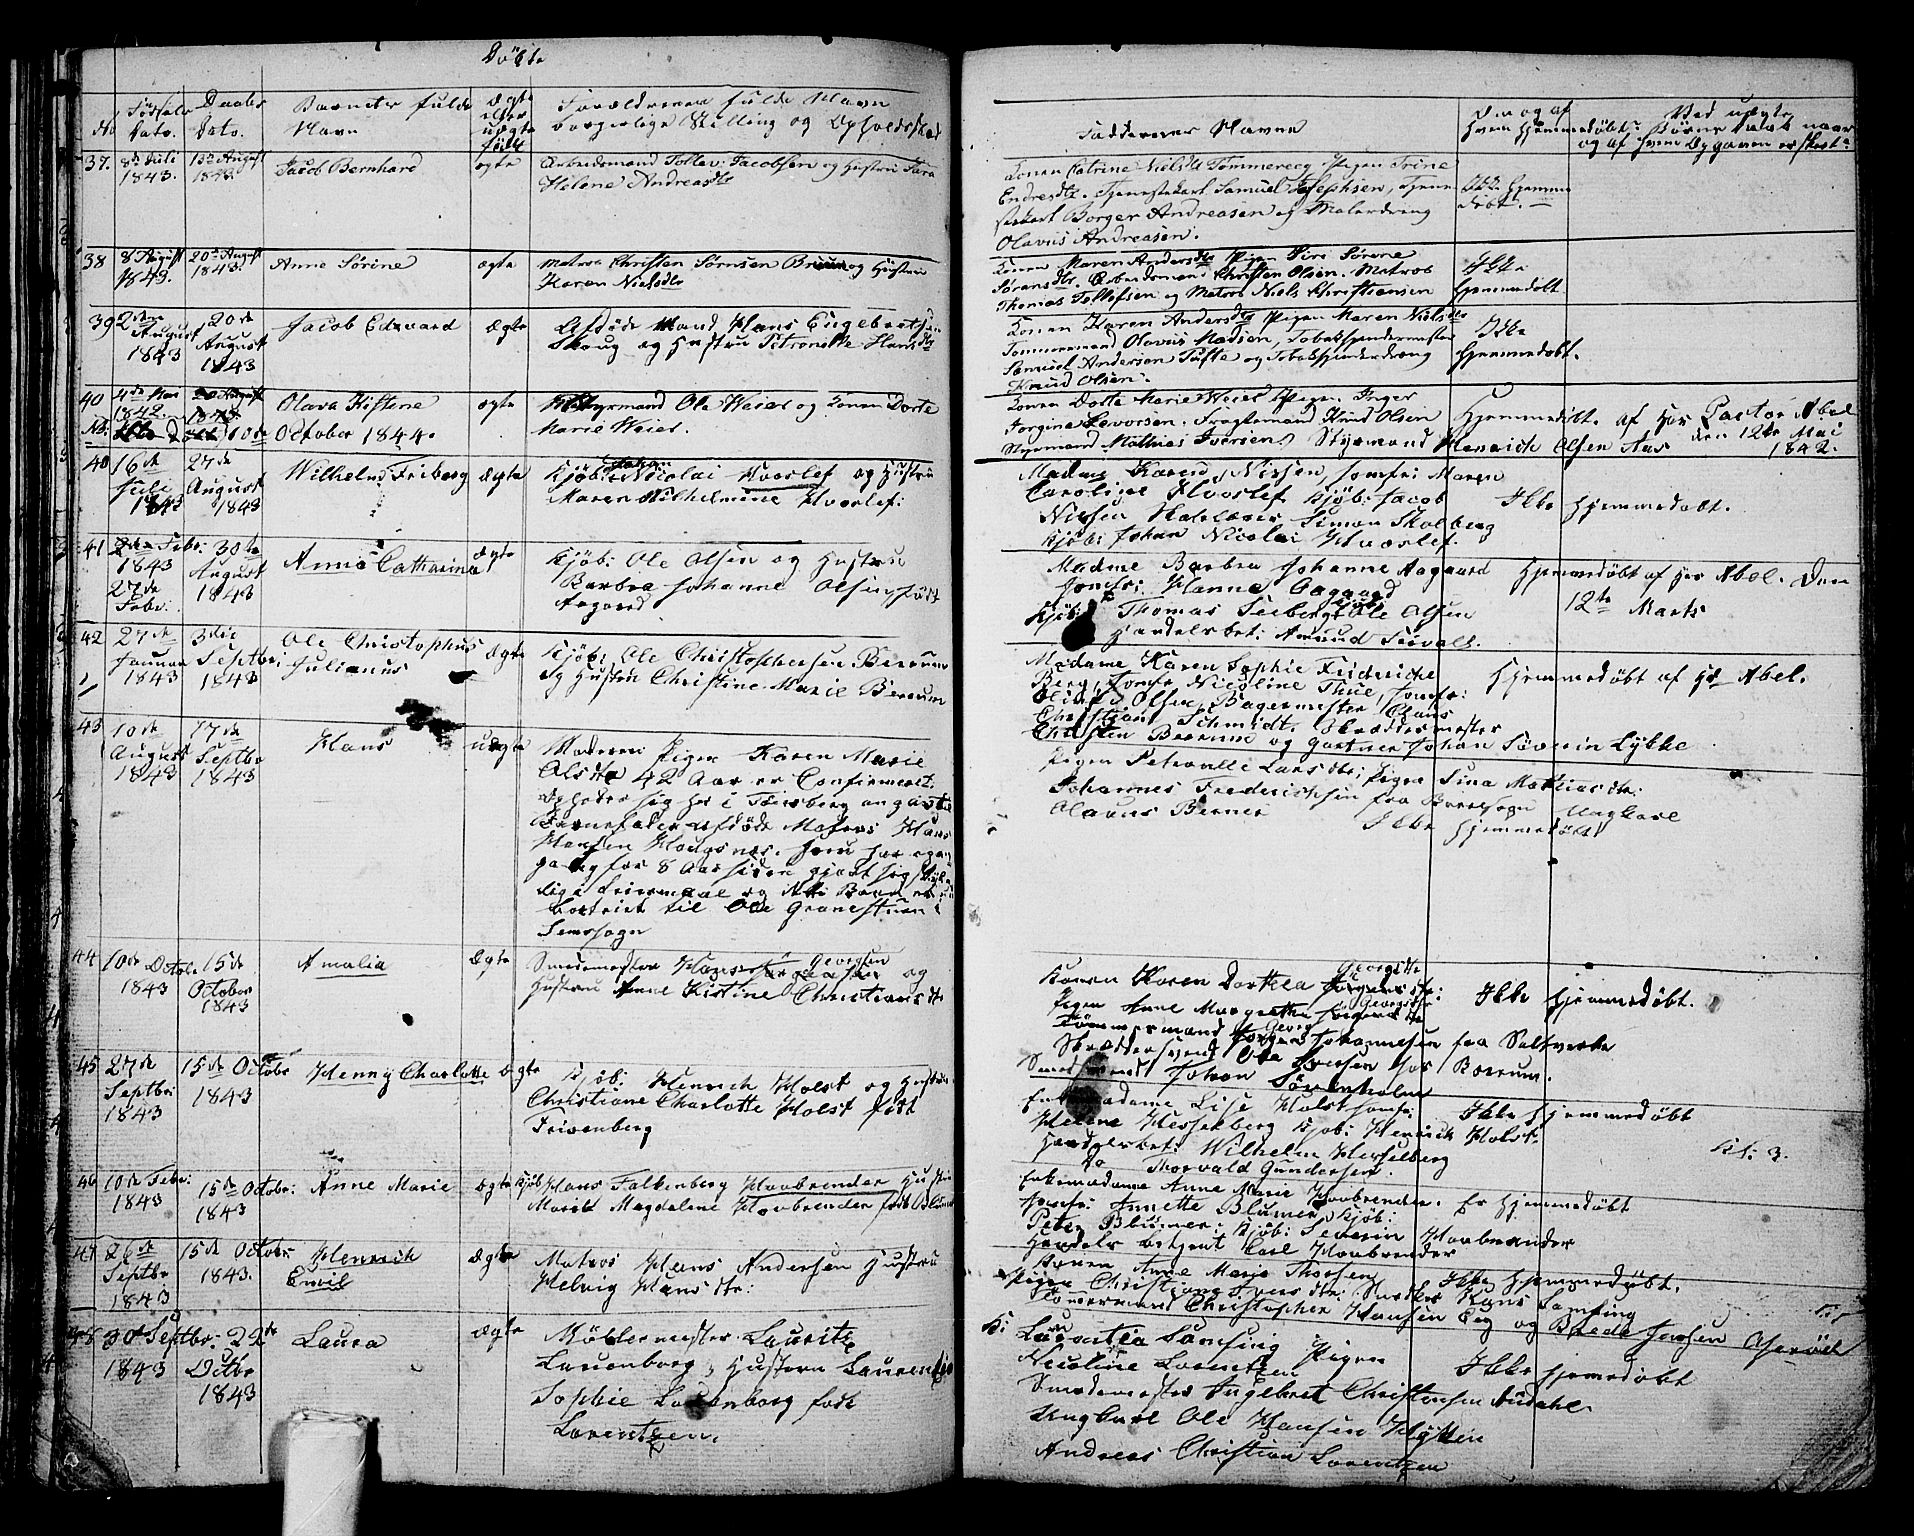 Döbte
No
Födsels Dato.
Daabs Dato.
Barnets fulde Navn
Ægte eller uægte född
Forældrenes fulde Navn
borgerlige Stilling og Opholdsted
Faddernes Navne
Om og af
hvem hjemmedöbt.
Ved uægte
Börns
og af hvem Opgaven er skeet
37.
8de Juli
1843.
13de August
1843.
Jacob Bernhard
ægte
Arbeidsmand Tollev Jacobsen og Hustru Sara
Helene Andreasdtr
Konen Catrine Nielsdtr Tommeraag Pigen Trine
Endresdtr. Tjenestekarl Samuel Josephsen, Tjene
stekarl Borger Andreasen og Malerdreng
Olavus Andreasen.
Ikke hjemme
döbt.
38
8 August
1843.
20de August
1843.
Anne Sörine
ægte
Matros Christen Sörnsen Bruun og Hustru
Karen Nielsdtr
Konen Maren Andersdtr Pigen Siri Sörene
Sörensdtr. Arbeidsmand Christen Olsen. Matros
Thomas Tollefsen og Matros Niels Christiansen
Ikke
hjemmedöbt
39
2den
August
1843
20de
August
1843
Jacob Edvard
Ægte
Afdöde Mand Hans Engebretsen
Skoug og Hustru Petronelle Hansdtr
Konen Karen Andersdtr Pigen Maren Nielsdtr
Tommermand Olavus Madsen, Tobakspindermester
Samuel Andersen Tufte og Tobakspinderdreng
Knud Olsen.
Ikke
hjemmedöbt.
40
4de Mai
1842.
20 August
1843
Olava Kistene
ægte
Styrmand Ole Weier og Konen Dorte
Marie Weier.
NB.
10de
October 1844.
Konen Dorte Marie Weiel Pigen Inger
Jorgine Levorsen. Fragtemand Knud Olsen
Styrmand Mathias Iversen, Styrmand Henrich Olsen Aas
Hjemmedöbt. af Her Pastor Abel
den 12te Mai
1842.
40
16de
Juli
1843
27de
August
1843
Wilhelm Friberg
Ægte
Kjöb: Johan Nicolai Hvoslef og Hustru
Maren Wilhelmine Hvoslef:
Madme Karen Nissen, Jomfr: Maren
Caroline Hvoslef Kjöb: Jacob
Nissen Simon Stolberg
Kjöb: Johan Nicolai Hvoslef.
Ikke hjemmedöbt.
41
2den Febr:
1843
27de
Febr:
30te
August
1843
Anne Catharina
Ægte
Kjöb: Ole Olsen og Hustrue
Barbra Johanne Olsen, född
Aagaard
Madme Barbra Johanne Aagaard
Jomfr: Hanne Aagaard
Kjöb: Thomas Seeberg Kjöb Ole Olsen
Handelsbet: Amund
Hjemmedöbt af Her Abel. Den
12te Marts
42
27de
Januar
1843
3die
Septbr:
1843
Ole Christophus
Julianus
Ægte
Kjöb: Ole Christophersen Berrum
Og Hustru Christine Marie Berrum
Madame Karen Sophie Fridricke
Berg, Jomfr Nicoline Thue, Jomfr:
Olsen, Bagermester Claus
Christian Schmidt. Skreddermester
Christen Berrum og Gartner Johan Söverin Lykke
Hjemmedöbt af Hr Abel.
43
10de
August
1843
17de
Septbr
1843
Hans
uægte
Moderen Pigen Karen Marie
Olsdtr 42 Aar er Confirmert.
Opholder sig her i Tönsberg angivne
Barnefader afdöde Matros Hans
Hansen Hougsnæs. som har egang
gang for 8 Aar siden gjort sig skyl
dig i Leiermaal og Barn er
bortriest til Ole Granestuen
Semssogn
Pigen Petronelle Larsdtr: Pigen Sina Mathiasdtr.
Johannes Frederichsen fra Borresogn Ungkarl
Olaus Berner
Ikke hjemmedöbt
44
10de Octob.
1843
15de
October
1843
Amalia
Ægte
Smedemester Hans Georgsen og
Hustru Anne Kistine Christiansdtr
Konen Karen Dorthea Georgsdtr
Pigen Anne Margrethe Georgsdtr:
Tömmermand Georg Johannesen fra Saltverke
Skreddersvend Ole Hansen hos Berrum.
Smedsvend Johan Sörenholm
Ikke hjemmedöbt.
45
27de
Septbr:
1843
15de Octobr
1843
Henny Charlotte
Ægte
Kjöb: Henrich Holst og Hustru
Christiane Charlotte Holst född
Frisenberg
Enkemadame Lise Holst Jomfr:
Helene Hesselberg Kjöb: Henrich Holst
Handelsbet: Wilhelm Hesselberg
do Thorvald Gundersen.
Ikke hjemmedöbt
Kl: 3.
46
10de Febr:
1843
15de Octobr:
1843
Anne Marie
Ægte
Kjöb Hans Falkenberg Haabrender Hustru
Marie Magdalene Haabrender född Blumer
Enkemadame Anne Marie Haabrender.
Jomfr: Annette Blumer, Kjöb:
Peter Blumer; Kjöb: Severin Haabrænder
Handels betjent Carl Haabrender
Er hjemmedöbt
47
26de
Septbr
1843
15de Octobr:
1843.
Henrich
Emil
Ægte
Matros Hans Andersen Hustru
Helvig Hansdtr:
Konen Anne Marie Thorsen
Pigen Christiane Iversdtr: Smeker Hans Lamping
Tömmermand Christopher Hansen Eeg og Brede Jensen
Ikke hjemmedöbt.
48
30de Septbr:
1843
22de
Octbr
1843
Laura
Ægte
Möllemester Lauritz
Lauenborg, Hustru Laurentse
Sophie Lauenborg född
Lorentzen.
K: Laurentia Lamping Pigen
Nicoline Lorentzen
Smedemester Ingebret Christensen Audahl.
Ungkarl Ole Hansen Hytten
Andreas Christian Lorentzen
Ikke hjemmedöbt